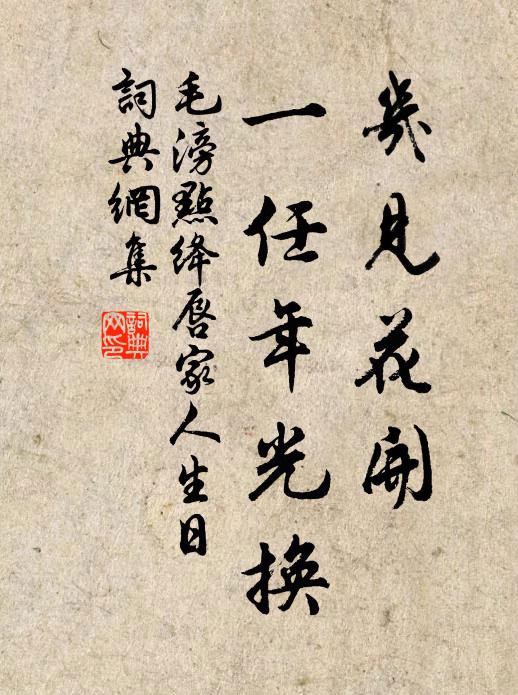 幾見花開
一任年光換
毛滂點絳唇家人生日
詞典網集
詞典網印